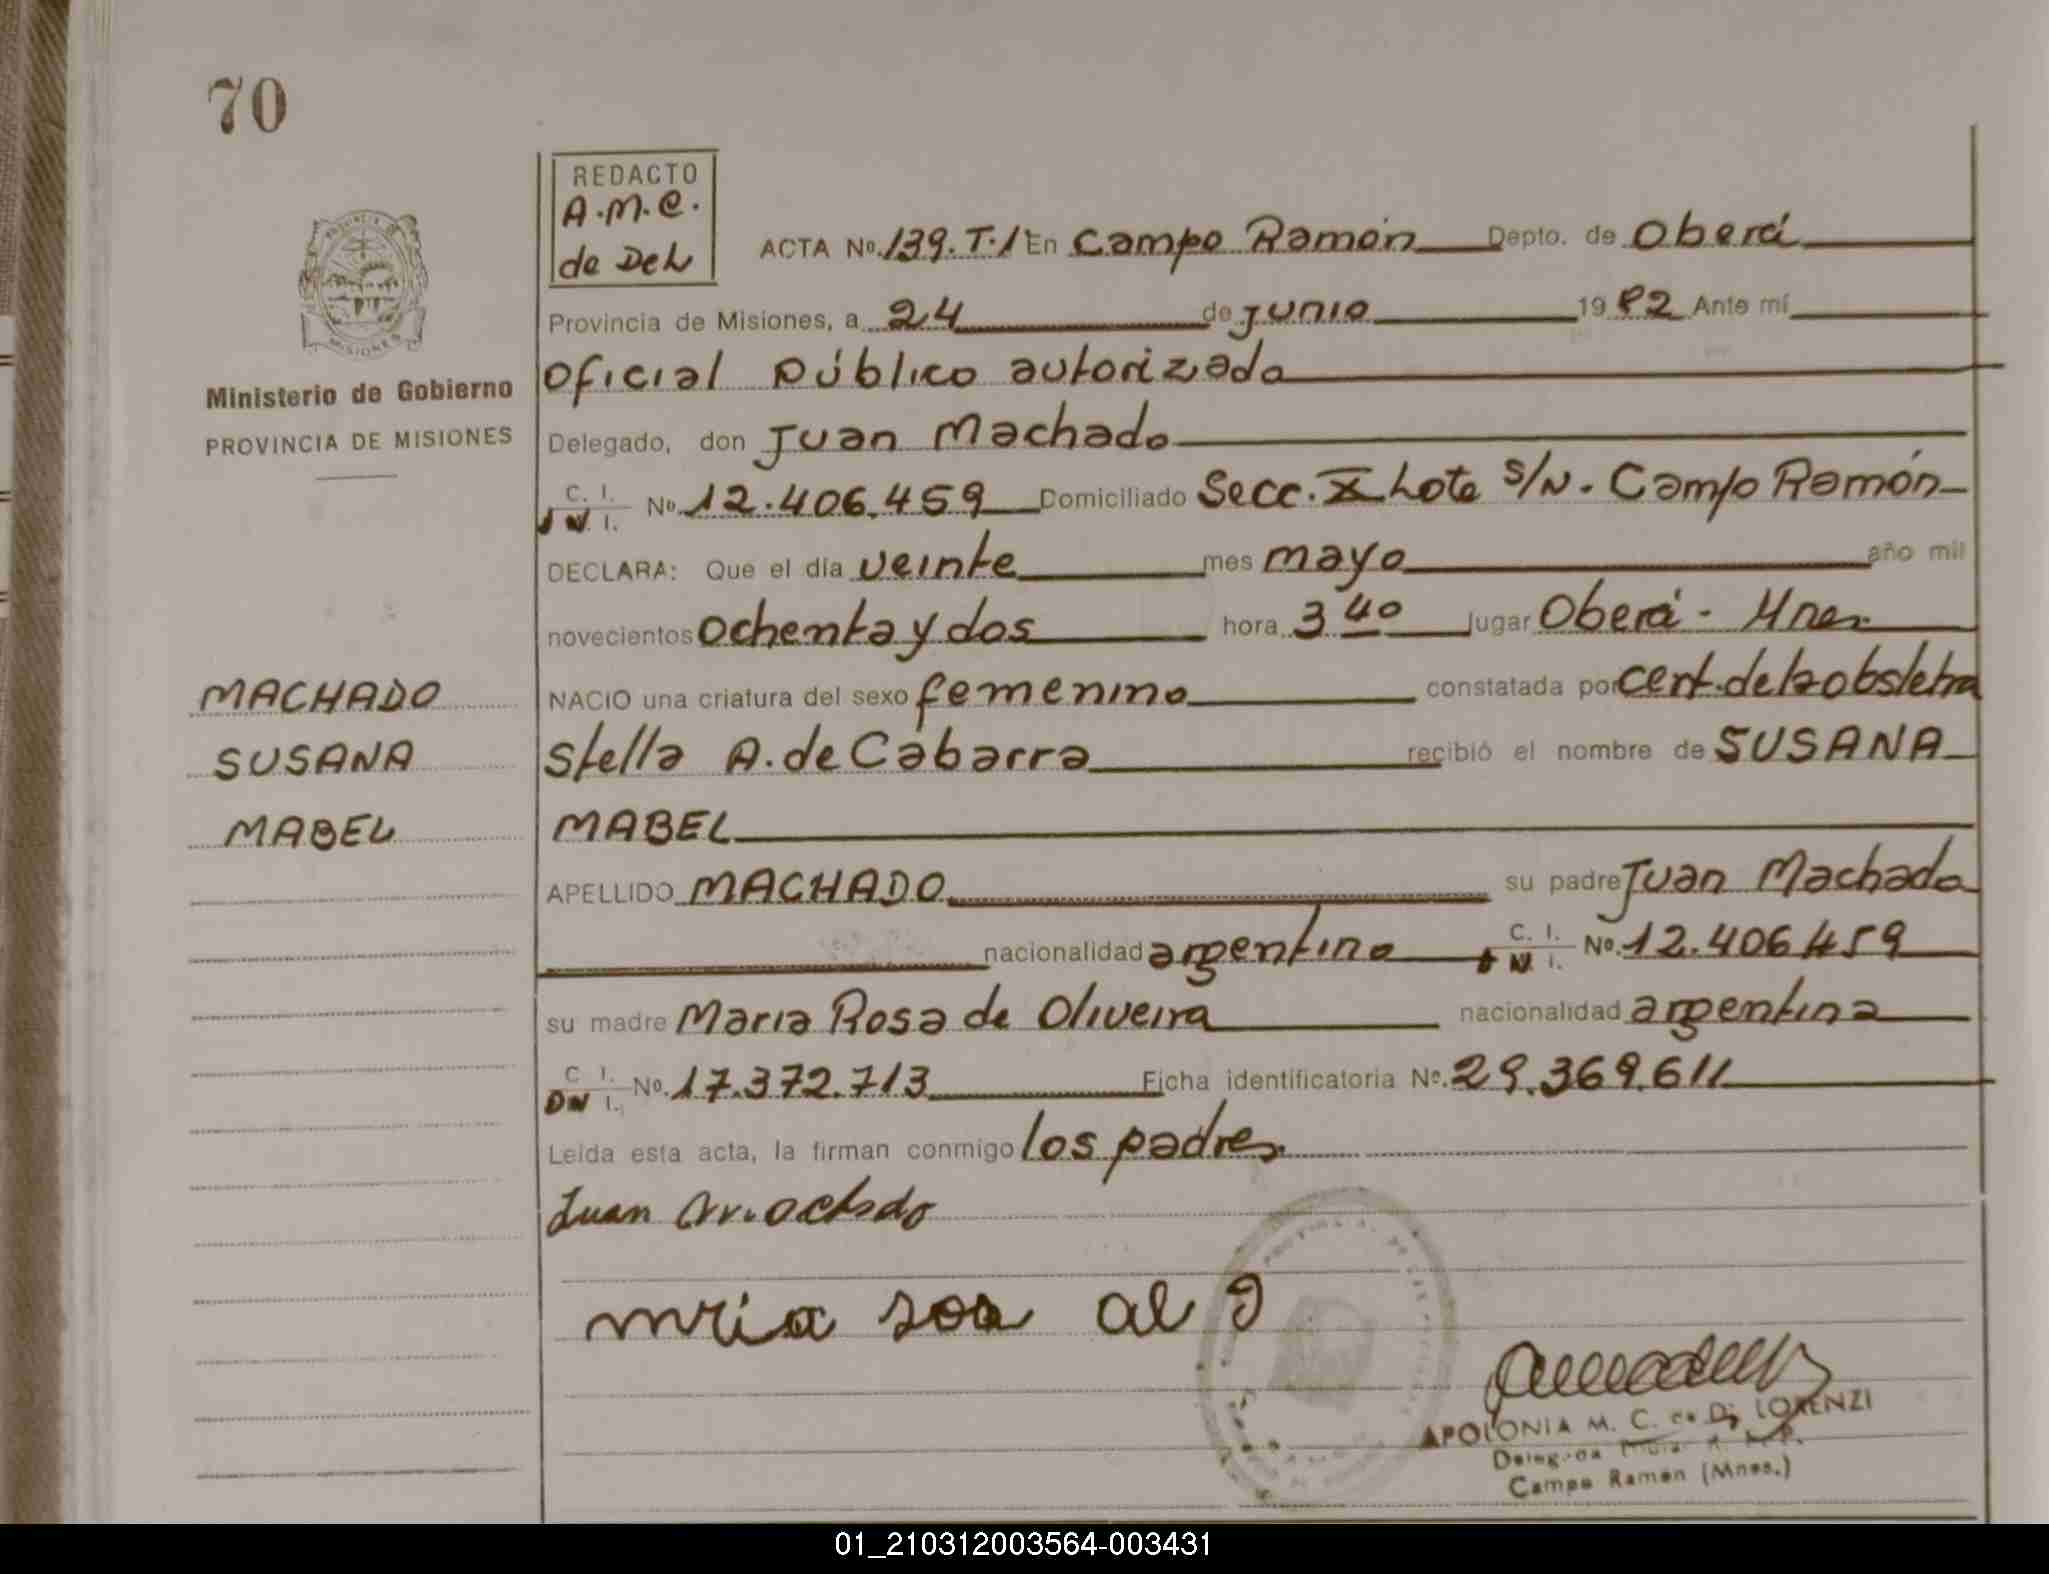 70
REDACTO
A.M.C.
de Deh
ACTA Nº 139.T.1 En Campo Ramón Depto. de Oberá
Provincia de Misiones, a 24 de junio 1982 Ante mí
Oficial Público autorizado
Ministerio de Gobierno
PROVINCIA DE MISIONES
MISIONES
Delegado, don Juan Machado
C. I. N. I. Nº 12.406.459 Domiciliado Secc. X Lote S/N. Campo Ramón
DECLARA: Que el día veinte mes mayo año mil
novecientos ochenta y dos hora 3 40 lugar Oberá - Mnes.
MACHADO
SUSANA
MABEL
NACIO una criatura del sexo femenino constatada por cert. de la obstetra
Stella A. de Cabarra recibió el nombre de SUSANA
MABEL
APELLIDO MACHADO su padre Juan Machado
nacionalidad argentino C. I. N. I. Nº 12.406.459
su madre Maria Rosa de Oliveira nacionalidad argentina
C. I. DN I. Nº 17.372.713 Ficha identificatoria Nº 29.369.611
Leída esta acta, la firman conmigo los padres.
Juan Machado
mria soa al
APOLONIA M. C. de Di LORENZI
Delegada
Campo Ramón (Mnes.)
01_210312003564-003431